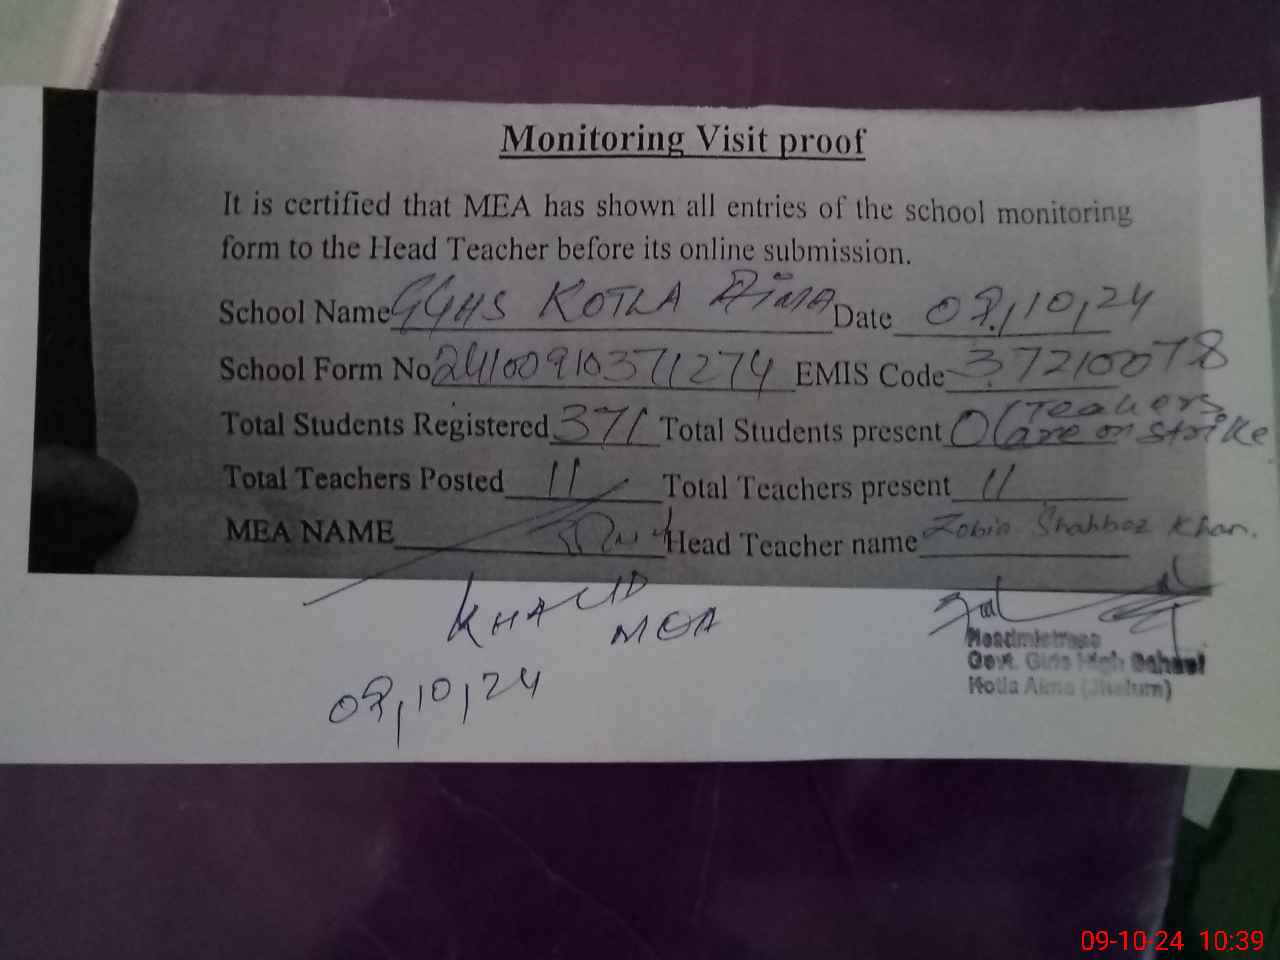 Monitoring Visit proof
It is certified that MEA has shown all entries of the school monitoring
form to the Head Teacher before its online submission.
School Name GGHS KOTLA AIMA Date 09,10,24
School Form No 24100910371274 EMIS Code 37210078
Total Students Registered 371 Total Students present 0 (Teachers are on strike
Total Teachers Posted 11 Total Teachers present 11
MEA NAME Head Teacher name Zobia Shahbaz Khan.
KHALID
MEA
09,10,24
Headmistress
Govt. Girls High School
Kotla Aima (Jhelum)
09-10-24 10:39